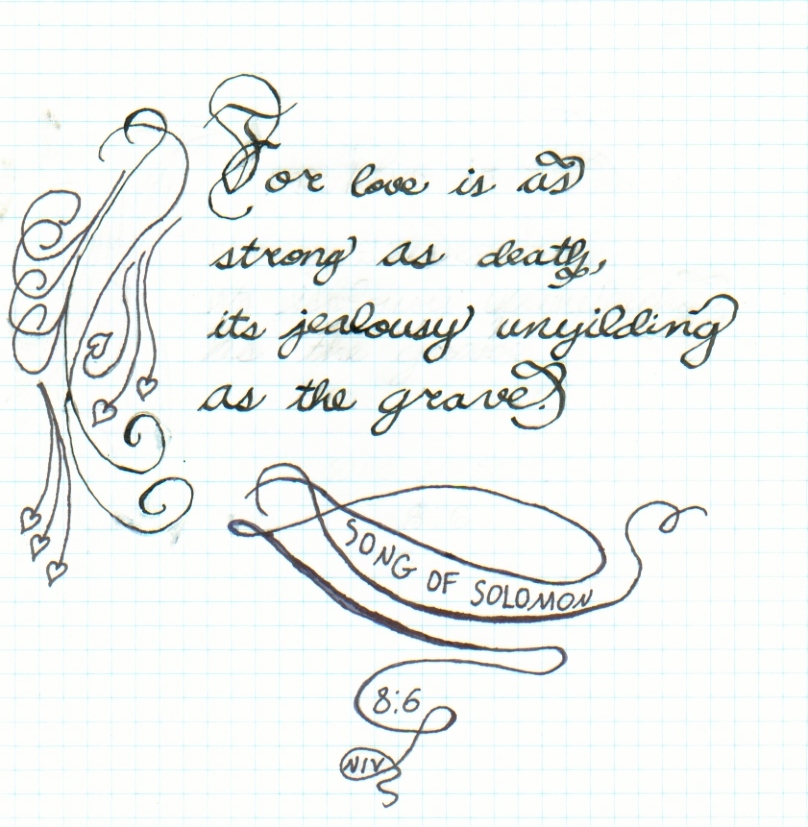 For love is as
strong as death,
its jealousy unyilding
as the grave.
SONG OF SOLOMON
8:6
NIV